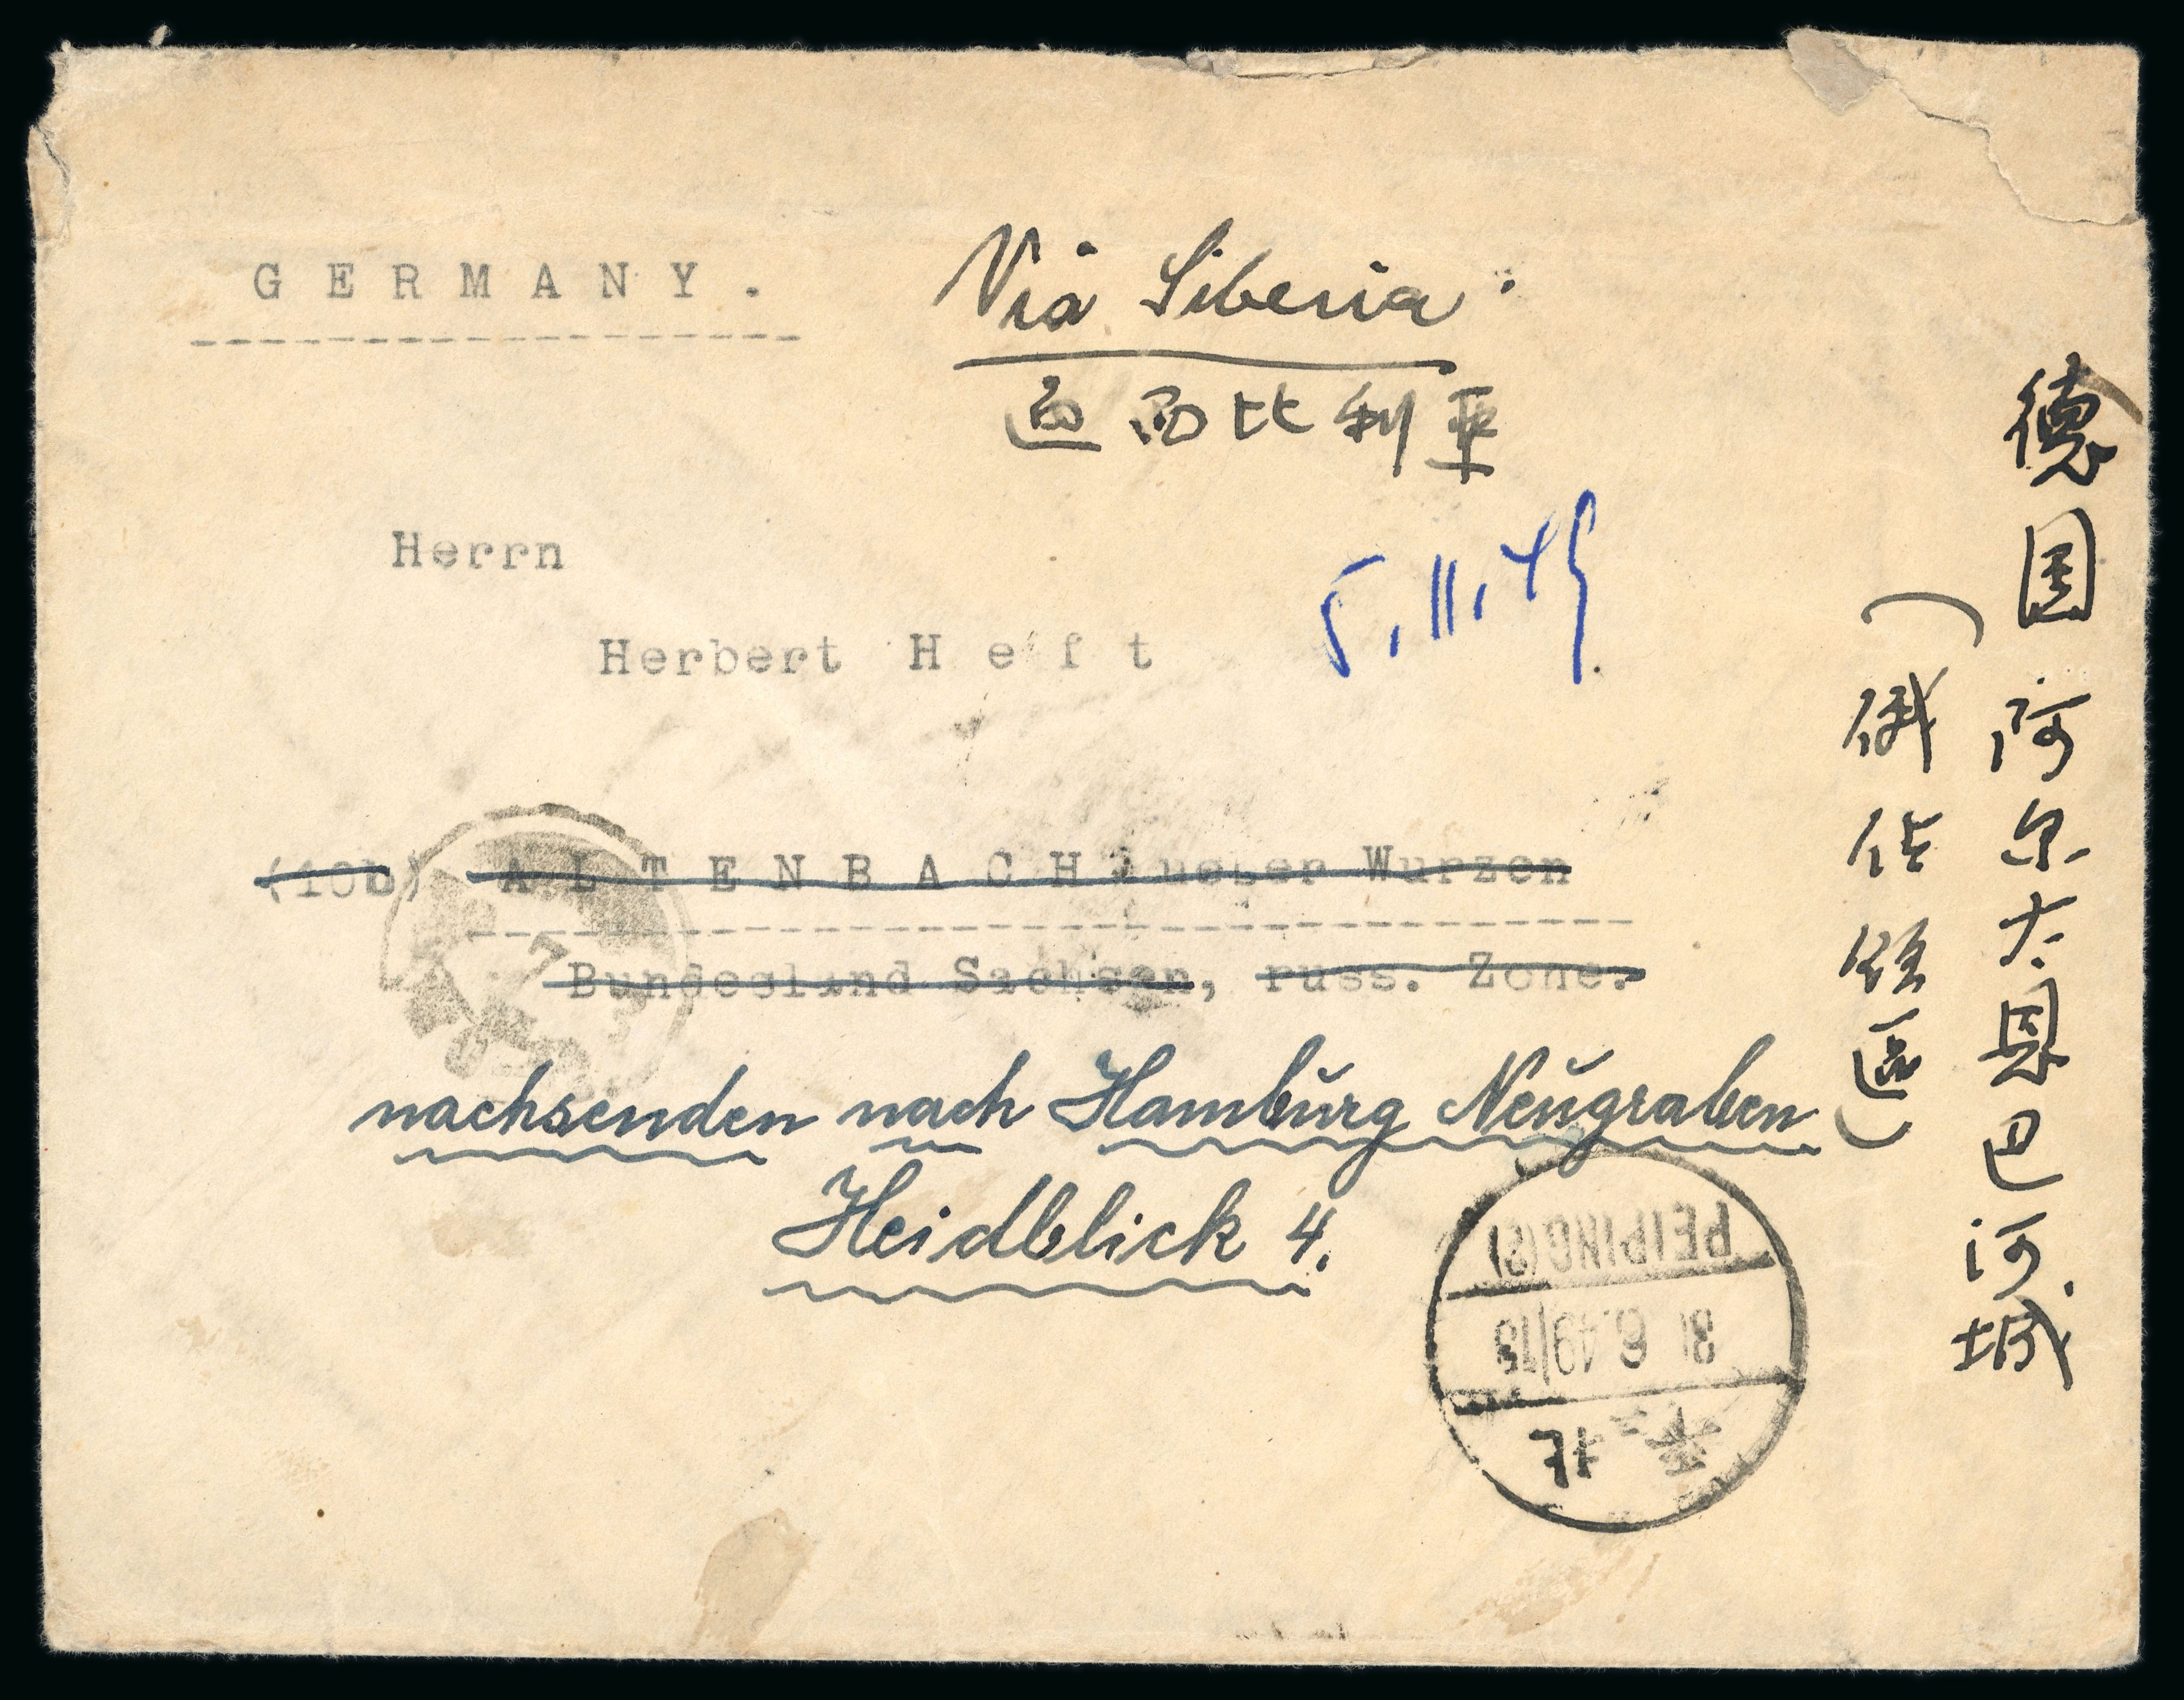 GERMANY.
Via Siberia.
西比利亞
Herrn
5.11.49.
Herbert Heft
(10b) ALTENBACH ueber Wurzen
Bundesland Sachsen, russ. Zone.
nachsenden nach Hamburg Neugraben
Heidblick 4.
德国 阿尔大恩巴河城
(俄佔領區)
PEIPING (2)
6.49
北平